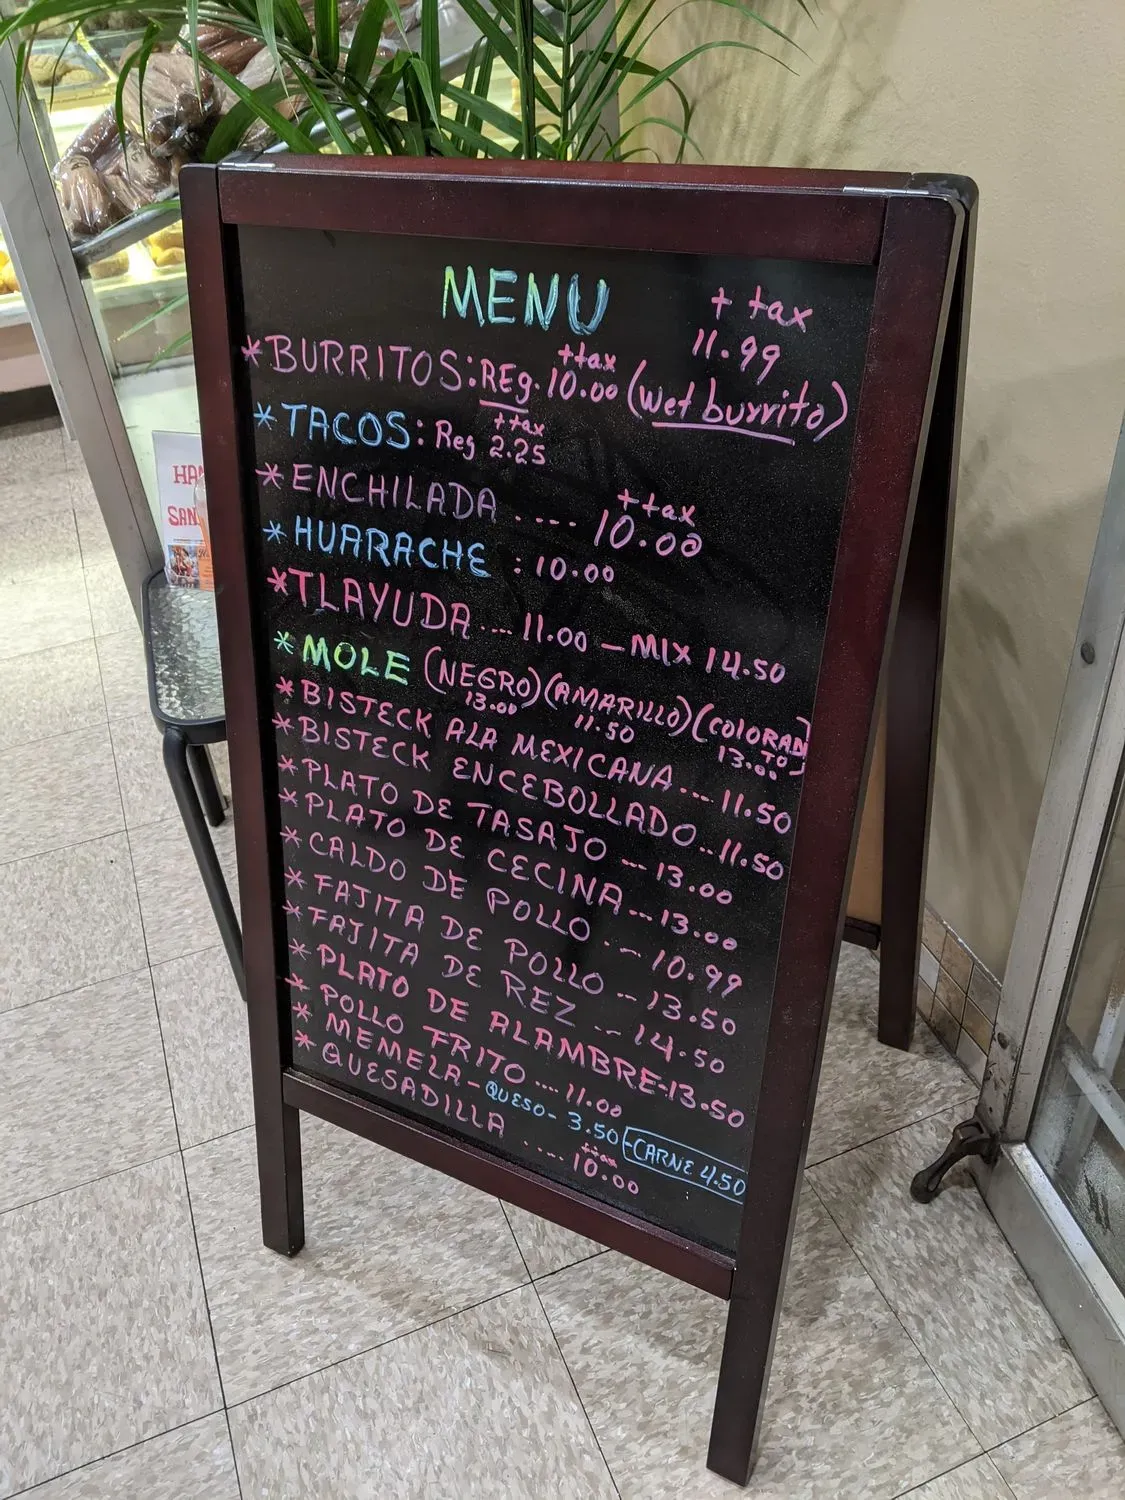 MENU
+ tax
11.99
+tax
*BURRITOS: REg. 10.00 (wet burrito)
+tax
*TACOS: Reg 2.25
+tax
*ENCHILADA .... 10.00
*HUARACHE : 10.00
*TLAYUDA .... 11.00 - MIX 14.50
*MOLE (NEGRO) (AMARILLO) (COlORADTO)
13.00 11.50 13.00
*BISTECK ALA MEXICANA ... 11.50
*BISTECK ENCEBOLLADO .. 11.50
*PLATO DE TASAJO ... 13.00
*PLATO DE CECINA ... 13.00
*CALDO DE POLLO ... 10.99
*FAJITA DE POLLO ... 13.50
*FAJITA DE REZ ... 14.50
*PLATO DE ALAMBRE-13.50
*POLLO FRITO .... 11.00
*MEMELA - QUESO - 3.50 -CARNE 4.50
+tax
*QUESADILLA ... 10.00
HA
SAN